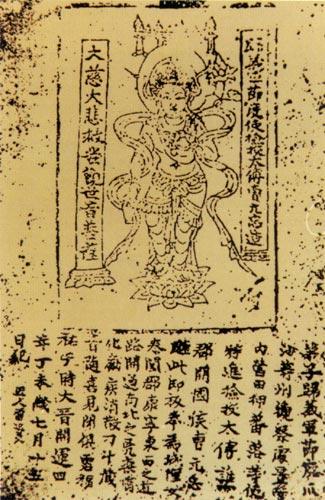 歸義軍節度使檢校太傅曹元忠造
大慈大悲救苦觀世音菩薩
弟子歸義軍節度瓜
沙等州觀察處置
內營田押蕃落等使
特進檢校太傅譙
郡開國侯曹元忠
雕此印板奉為城隍
泰闔郡康寧東西之
路開通南北之凶渠
化癘疾消散刁斗藏
音隨喜見聞俱霑福
祐于時大晉開運四
年丁未歲七月十五
日紀 匠人